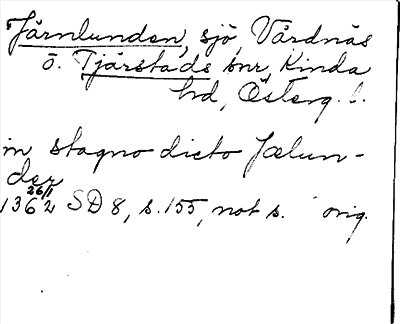 Järnlunden, sjö, Vårdnäs
o. Tjärstads snr, Kinda
hd, Österg. l.
in stagno dicto Jælun-
der
26/1
1362 SD 8, s. 155, not s. orig.